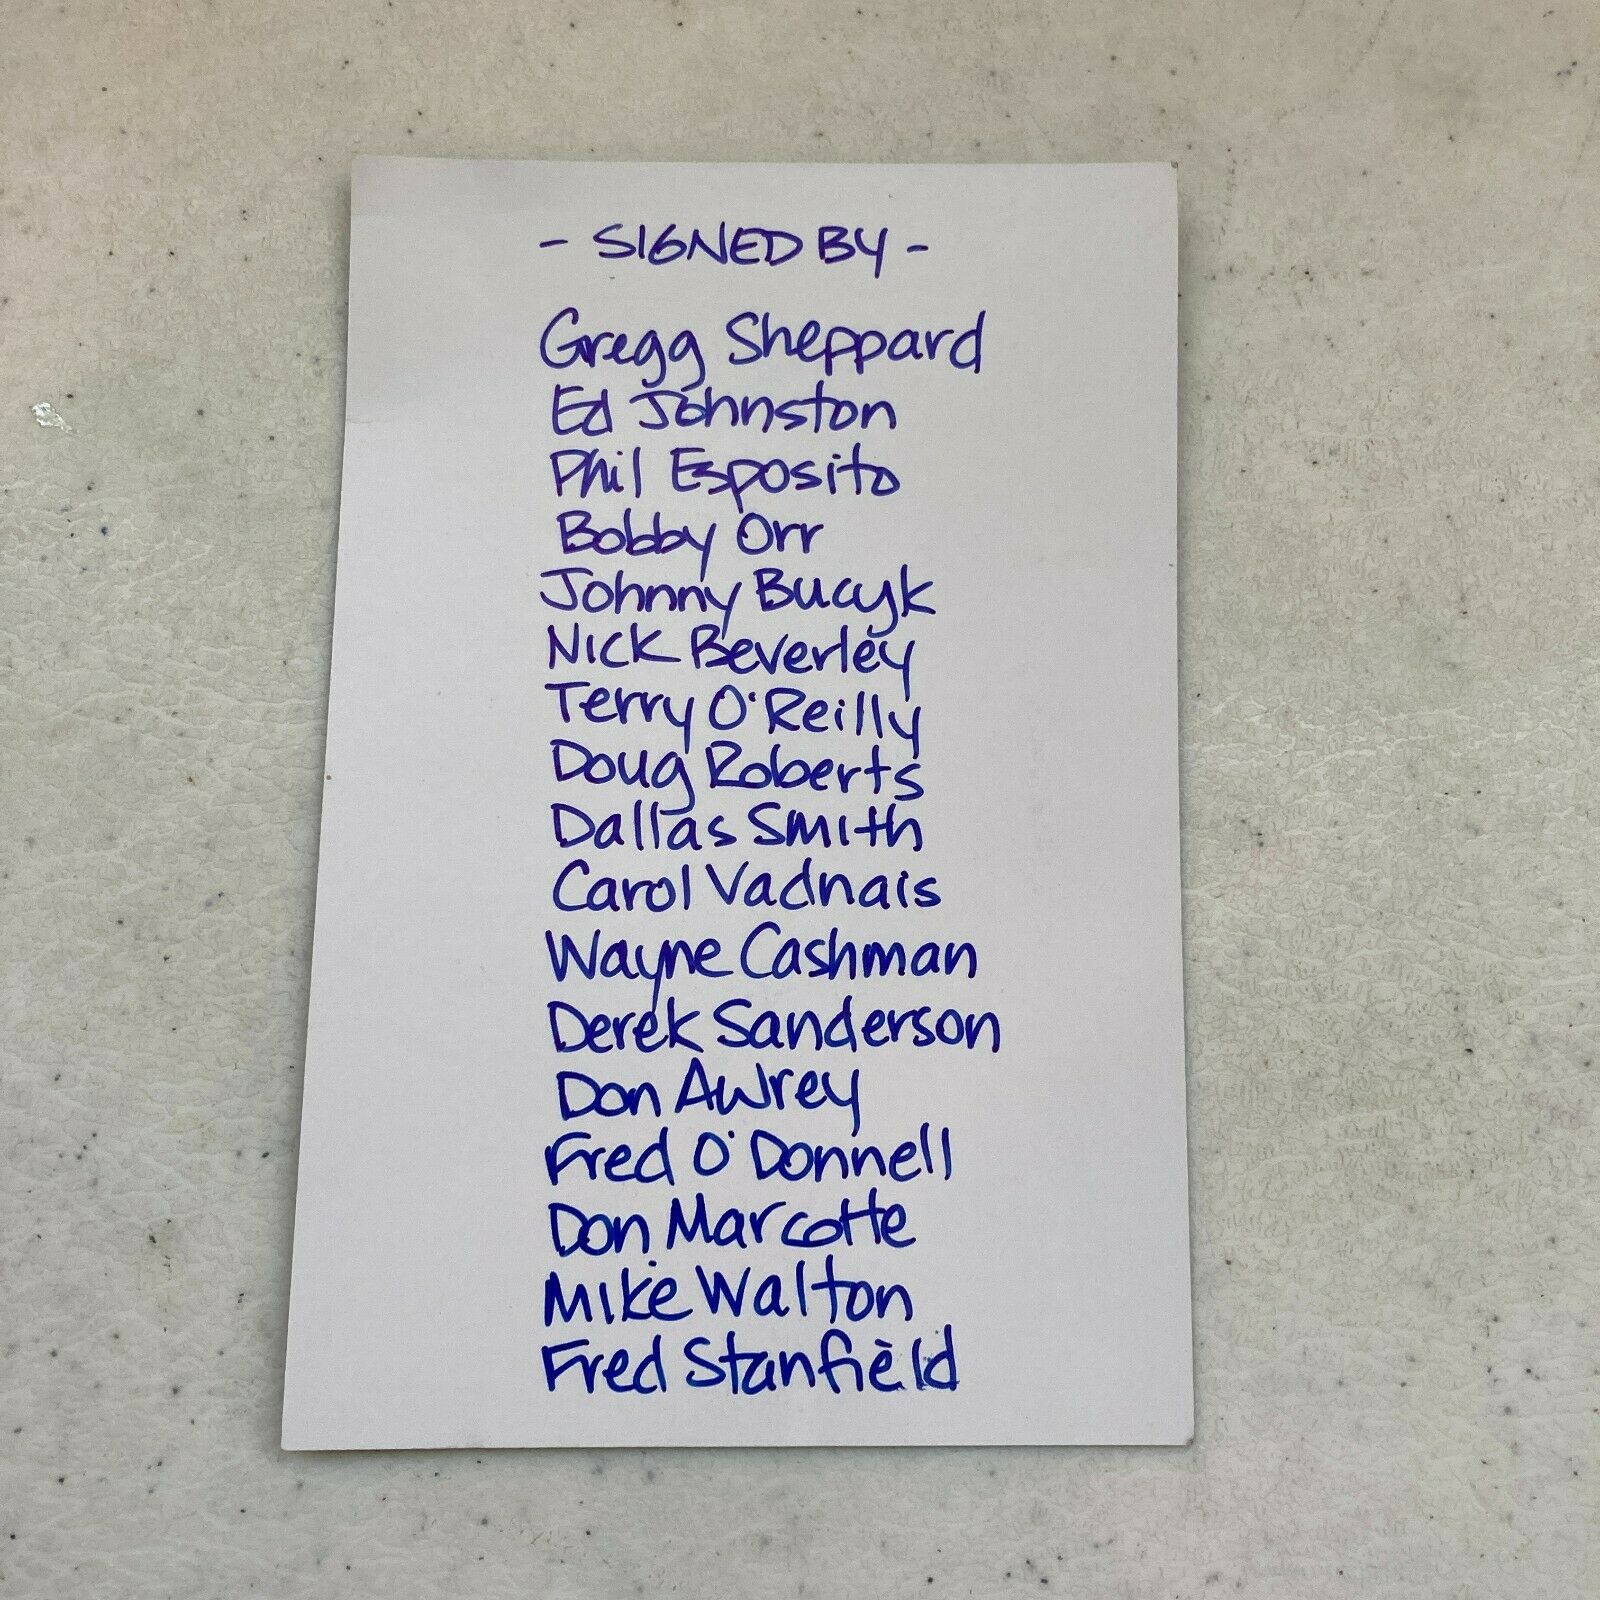 - SIGNED BY -
Gregg Sheppard
Ed Johnston
Phil Esposito
Bobby Orr
Johnny Bucyk
Nick Beverley
Terry O'Reilly
Doug Roberts
Dallas Smith
Carol Vadnais
Wayne Cashman
Derek Sanderson
Don Awrey
Fred O'Donnell
Don Marcotte
Mike Walton
Fred Stanfield